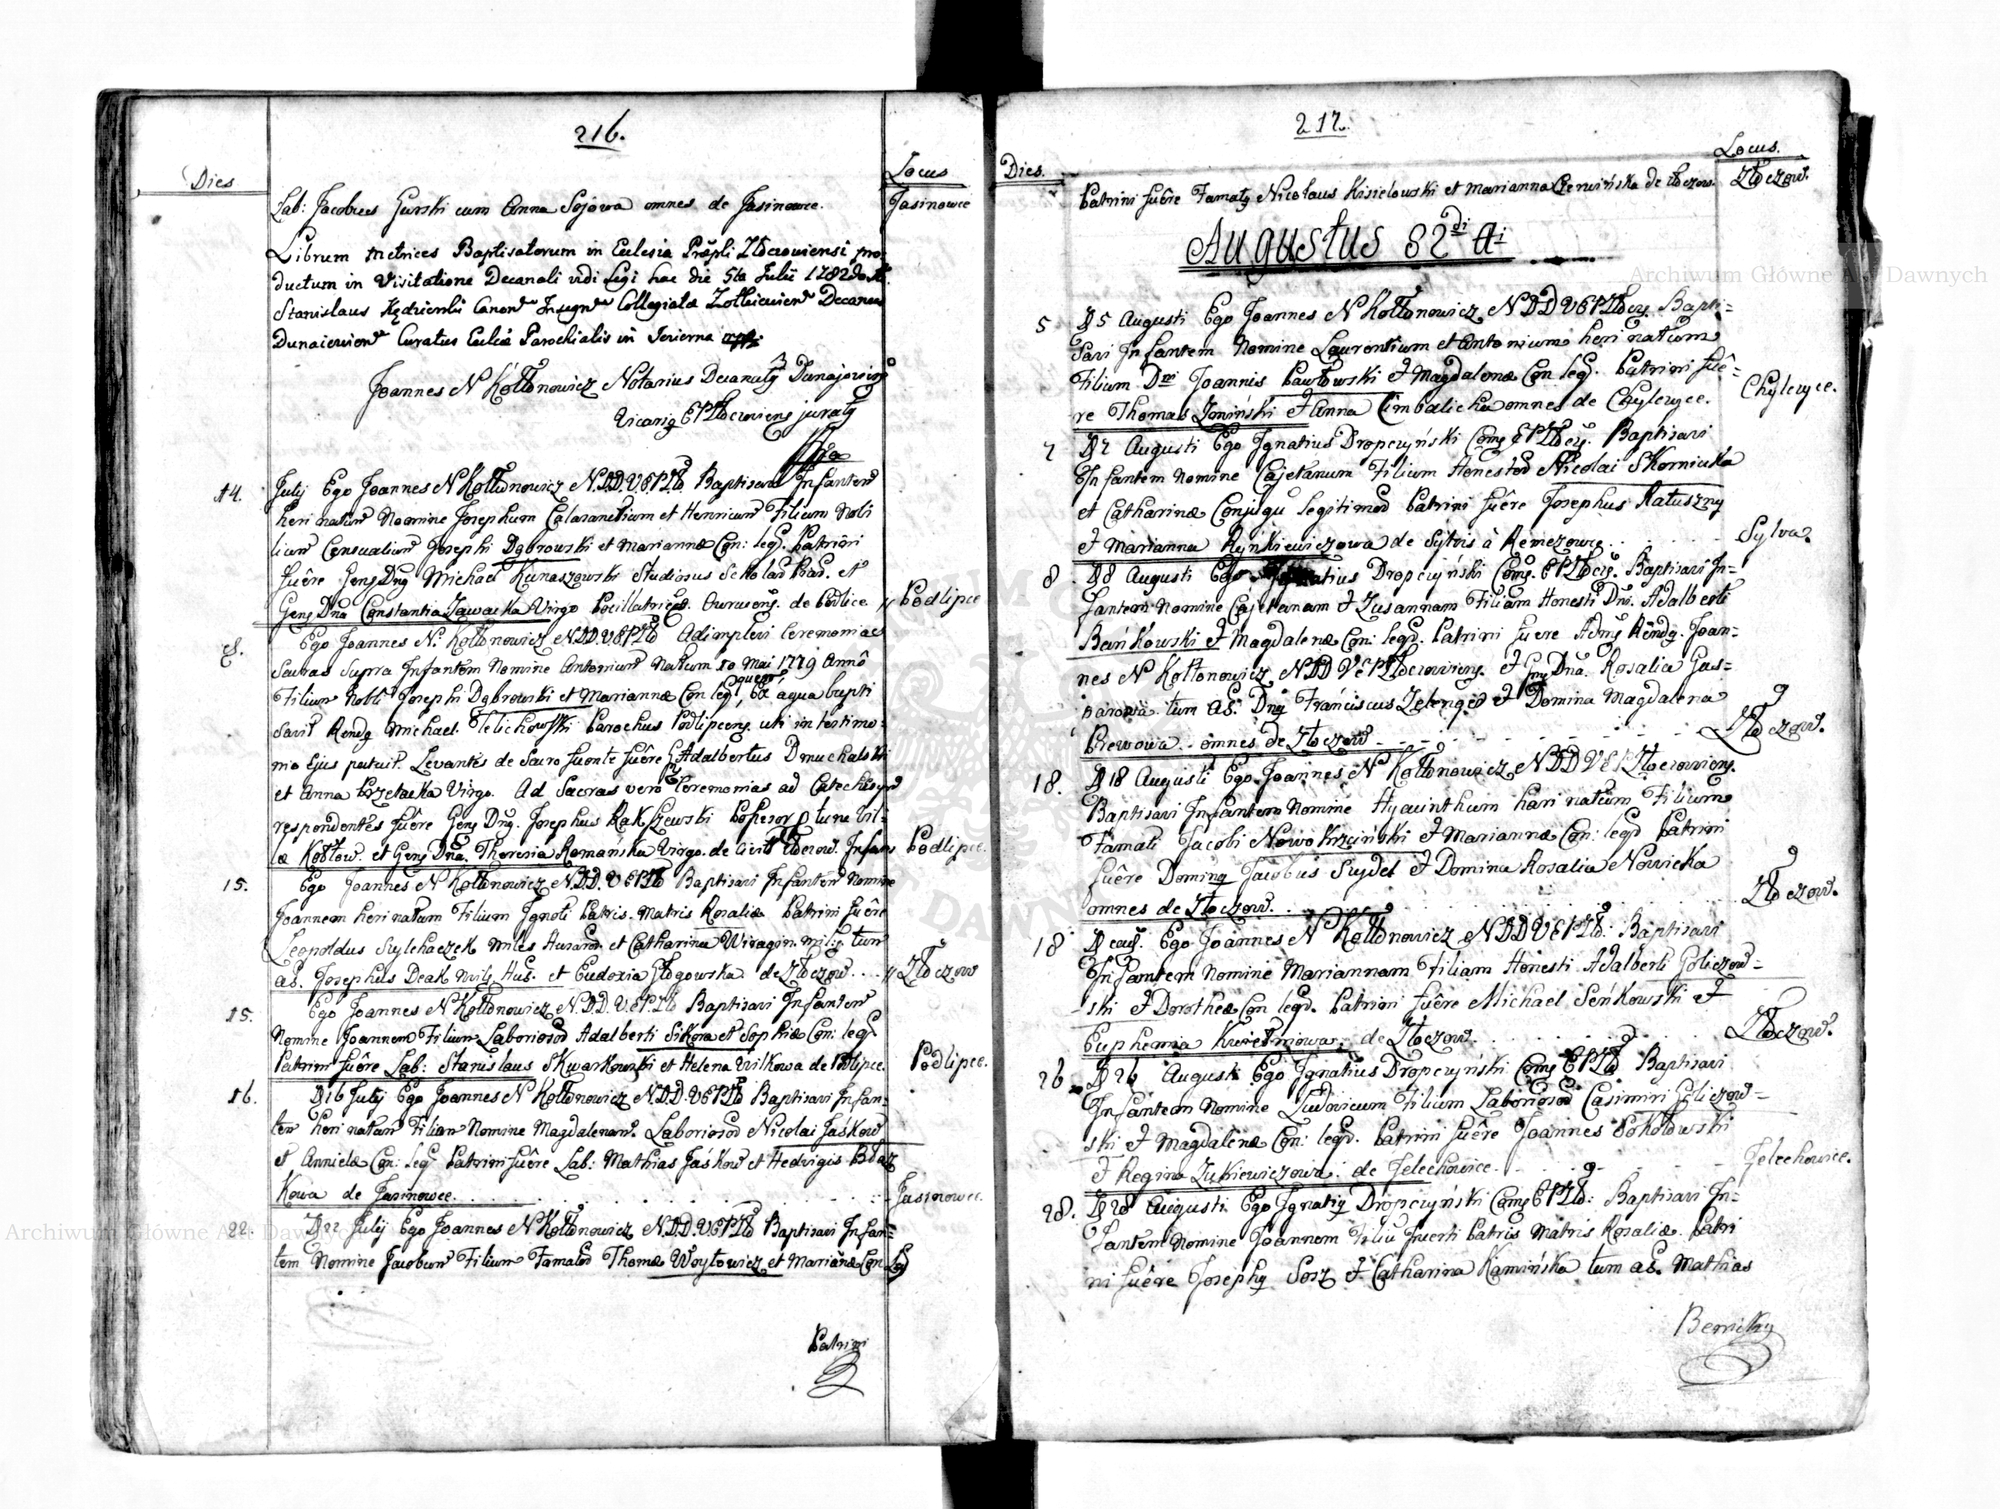 216.
Dies
Locus
Lab: Jacobus Gurski cum Anna Sojowa omnes de Jasinowce.
Jasinowce
Librum metrices Baptisatorum in Eclesia Præpli Złoczowiensi pro=
ductum in Visitatione Decanali vidi Legi hac die 5ta Julii 1782
Stanislaus Canon Insign Collegiatæ Decanus
Curatus Eccliæ Parochialis in Jezierna mpp
Joannes N Kołłonowicz Notarius Decanatg Dunajoviens
Vicarig EPZłoczoviens juratg
14.
July Ego Joannes N Kołłonowicz N.D.D.V.EPZło Baptisavi Infantem
heri natum Nomine Josephum Calasanctium et Henricum Filium Nobi
lium Josephi Dąbrowski et Mariannæ Con: leg. Patrini
fuêre Geng Dng Michael Kunaszowski Studiosus Et
Geng Dna Constantia Zawacka Virgo de Podlice
Podlipce
Ego Joannes N. Kołłonowicz N.D.D.V.EPZło Adimplevi Ceremonias
Sacras Supra Infantem Nomine Antonium Natum 10 Mai 1779 Annô
quem
Filium Nobi Josephi Dąbrowski et Mariannæ Con leg, Ex aqua bapti
savit Rendg Michael Parochus Podlipceng. uti in testimo=
nio Ejus patuit. Levantes de Sacro fuonte fuêre G Adalbertus Dmuchalski
et Anna Brzetacka Virgo. Ad Sacras vero Ceremonias ad
respondentes fuêre Geng Dng. Josephus tunc Vil=
læ Kołtow. et Geng Dna. Theresia Romańska Virgo. de
Podlipce.
15.
Ego Joannes N Kołłonowicz N.D.D.V EPZło Baptisavi Infantem Nomine
Joannem heri natum Filium Ignoti Patris. Matris Rosaliæ Patrini fuêre
Leopoldus Miles et Catharina tum
as. Josephus Deak Hus. et Eudoxia Głogowska de Złoczow....
Złoczow
15.
Ego Joannes N Kołłonowicz N.D.D.V.EPZło Baptisavi Infantem
Nomine Joannem Filium Laboriosod Adalberti Sikora et Sophiæ Con: leg.
Patrini fuêre Lab: Stanislaus Skwarkowski et Helena Wilkowa de Podlipce.
Podlipce.
16.
D16 July Ego Joannes N Kołłonowicz N.D.D.VEPZło Baptisavi Infan=
tem heri natam Filiam Nomine Magdalenam. Laboriosod Nicolai Jaśkow
et Annielæ Con: leg Patrini fuêre Lab: Mathias Jaśkow et Hedvigis
kowa de Jasinowce.
Jasinowce.
22.
D22 July Ego Joannes N Kołłonowicz N.D.D.VEPZło Baptisavi Infan=
tem Nomine Jacobum Filium Famatod Thomæ Woytowicz et Mariańæ Con Leg
Patrini
217.
Dies.
Locus.
Patrini fuêre Famatg Nicolaus Kisielowski et Marianna Czerwińska de Złoczow.
Złoczow.
Augustus 82di Ai
5
D5 Augusti Ego Joannes N Kołłonowicz N D D V EPZłocz. Bapti=
savi Infantem Nomine Laurentium et Antonium heri natum
Filium Dni Joannis Pawłowski & Magdalenæ Con leg. Patrini fuê=
re Thomas & Anna Cimbalicka omnes de Chylczyce.
Chylczyce.
7
D7 Augusti Ego Ignatius Dropczyński EPZłocz. Baptisavi
Infantem Nomine Cajetanum Filium Honestod Nicolai Skorniuka
et Catharinæ Conjugu legitimod Patrini fuêre Josephus Ratuszny
& Marianna Rynkiewiczowa de Sylvis à Remezowce
Sylva.
8
D8 Augusti Ego Ignatius Dropczyński EPZłocz. Baptisavi In=
fantem Nomine Cajetanam & Zusannam Filiam Honesti Dni. Adalberti
Bańkowski & Magdalenæ Con: legd. Patrini fuere Admg Rendg. Joan=
nes N Kołłonowicz N D D V EPZłoczowiens. & Gng Dna. Rosalia Gas=
parowa tum as. Dng Franciscus & Domina Magdalena
Brewowa.. omnes de Złoczow
Złoczow.
18.
D18 Augusti Ego Joannes N Kołłonowicz N D D V EPZłoczowiens.
Baptisavi Infantem Nomine Hyacinthum heri natum Filium
Famati Jacobi Nowokrzciński & Mariannæ Con: legd Patrini
fuêre Doming Jacobus Suydel & Domina Rosalia Nowicka
omnes de Złoczow.
Złoczow.
18
D ead. Ego Joannes N Kołłonowicz N D D V EPZło: Baptisavi
Infantem Nomine Mariannam Filiam Honesti Adalberti Goliczow=
ski & Dorotheæ Con legd. Patrini fuêre Michael Seńkowski &
Euphemia Kwietniowa de Złoczow.
Złoczow.
26
D26 Augusti Ego Ignatius Dropczyński EPZło Baptisavi
Infantem Nomine Ludovicum Filium Laboriosod Casimiri Goliczow=
ski & Magdalenæ Con: legd. Patrini fuêre Joannes Sokołowski
& Regina Zukiewiczowa. de Jelechowice.
Jelechowice.
28.
D28 Augusti Ego Ignatig Dropczyński EPZło: Baptisavi In=
fantem Nomine Joannem Filiu Incerti Patris Matris Rosaliæ. Patri
ni fuêre Josephg Sosz & Catharina Kamińska tum as. Mathias
Archiwum Główne Akt Dawnych
Archiwum Główne Akt Dawnych